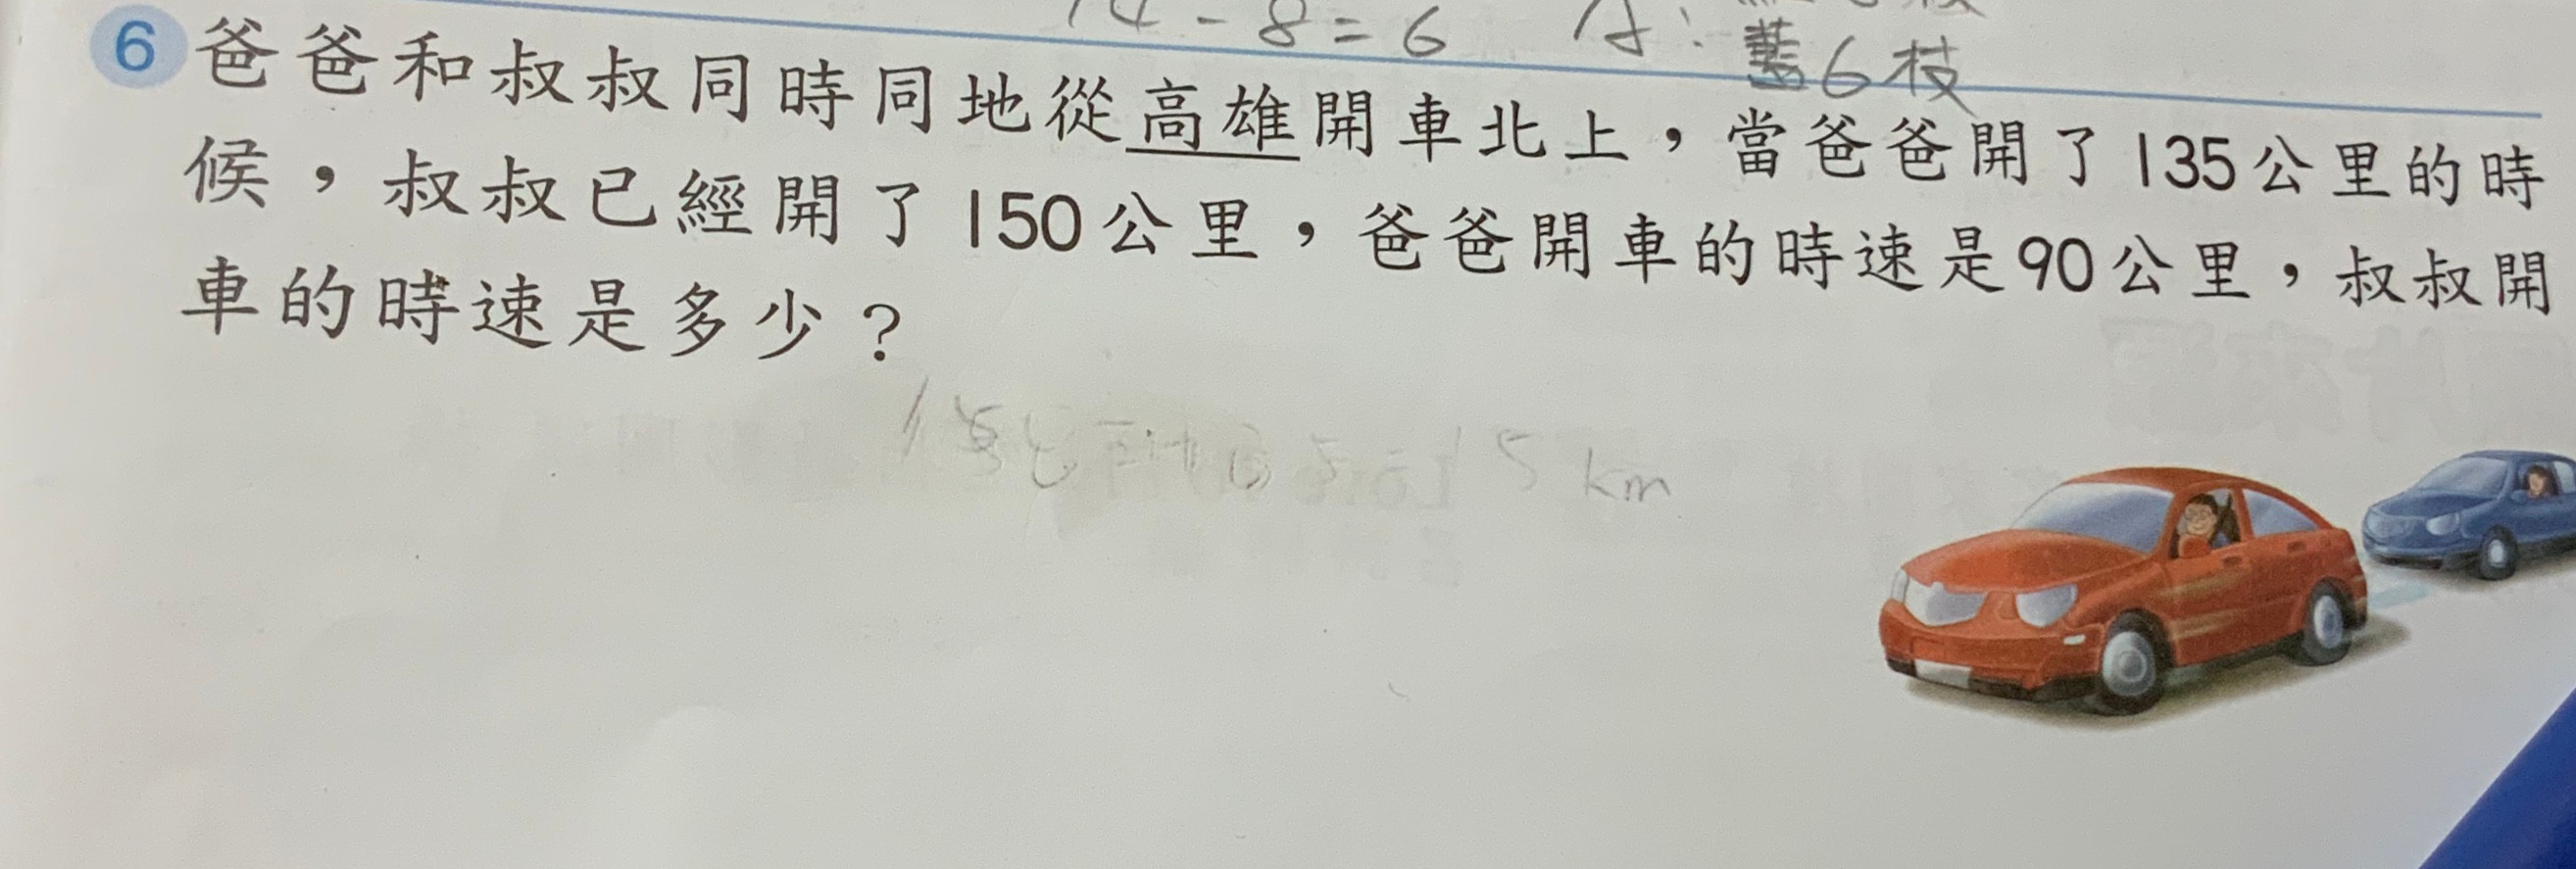 14-8=6 A:
藍6枝
6 爸爸和叔叔同時同地從高雄開車北上，當爸爸開了135公里的時
候，叔叔已經開了150公里，爸爸開車的時速是90公里，叔叔開
車的時速是多少？
15 km